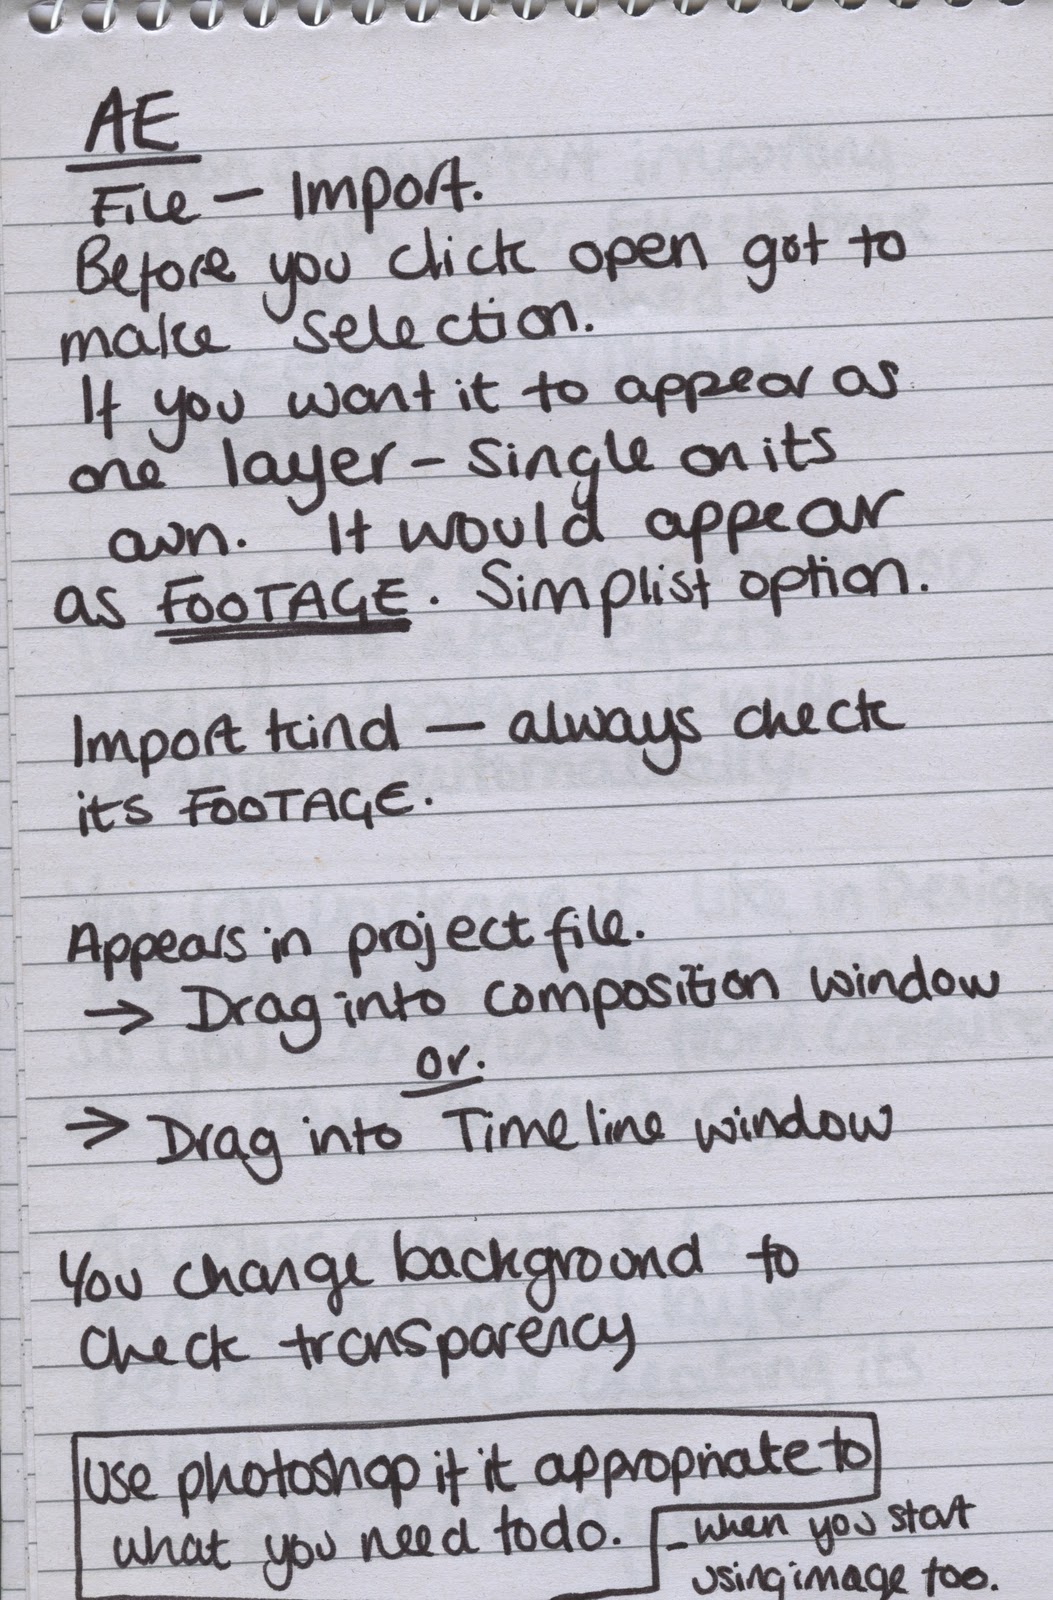 AE
File - Import.
Before you click open got to
make selection.
If you want it to appear as
one layer - single on its
own. It would appear
as FOOTAGE. Simplist option.
Import kind - always check
its FOOTAGE.
Appears in project file.
→ Drag into composition window
or.
→ Drag into Timeline window
You change background to
check transparency
Use photoshop if it appropriate to
what you need to do.
- when you start
using image too.